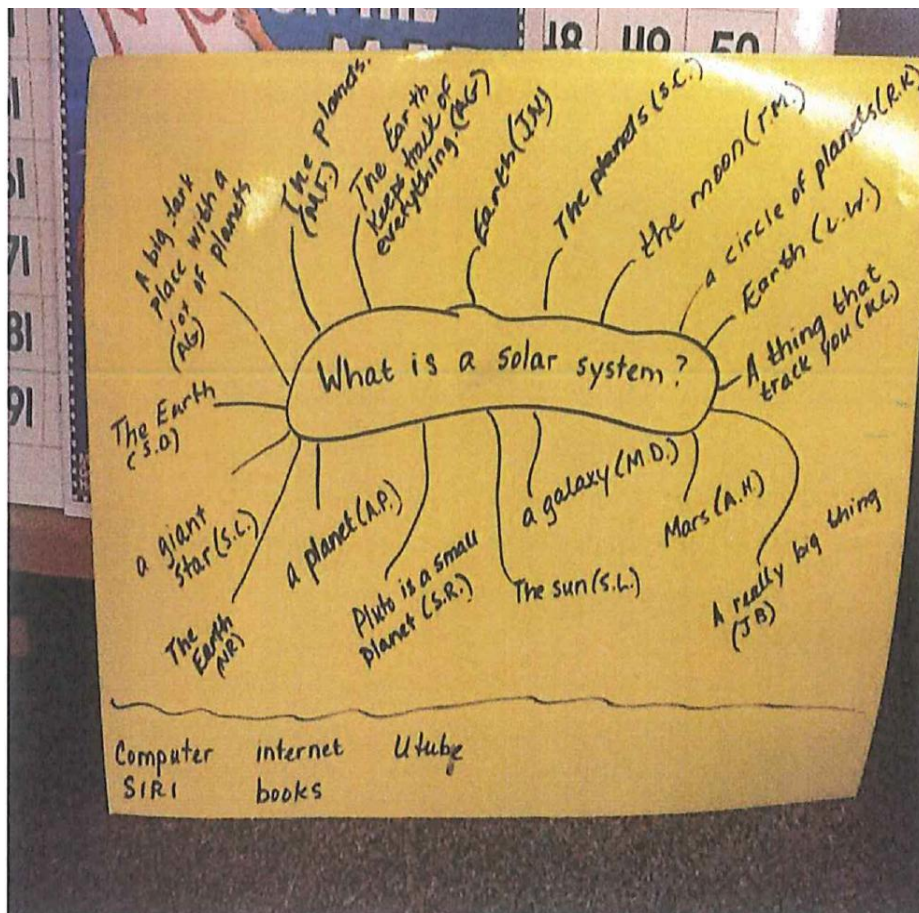 ON THE
MAP
48 49 50
51
61
71
81
91
What is a solar system?
A big dark
place with a
lot of planets
(AG)
The planets.
(M.F.)
The Earth
keeps track of
everything. (AG)
Earth (J.N)
The planets (S.C.)
the moon (T.M.)
a circle of planets (R.K)
Earth (L.W.)
A thing that
track you (K.C.)
The Earth
(S.O)
a giant
star (S.C.)
The
Earth
(NR)
a planet (A.P.)
Pluto is a small
planet (S.R.)
The sun (S.L.)
a galaxy (M.D.)
Mars (A.H.)
A really big thing
(JB)
Computer internet Utube
SIRI books